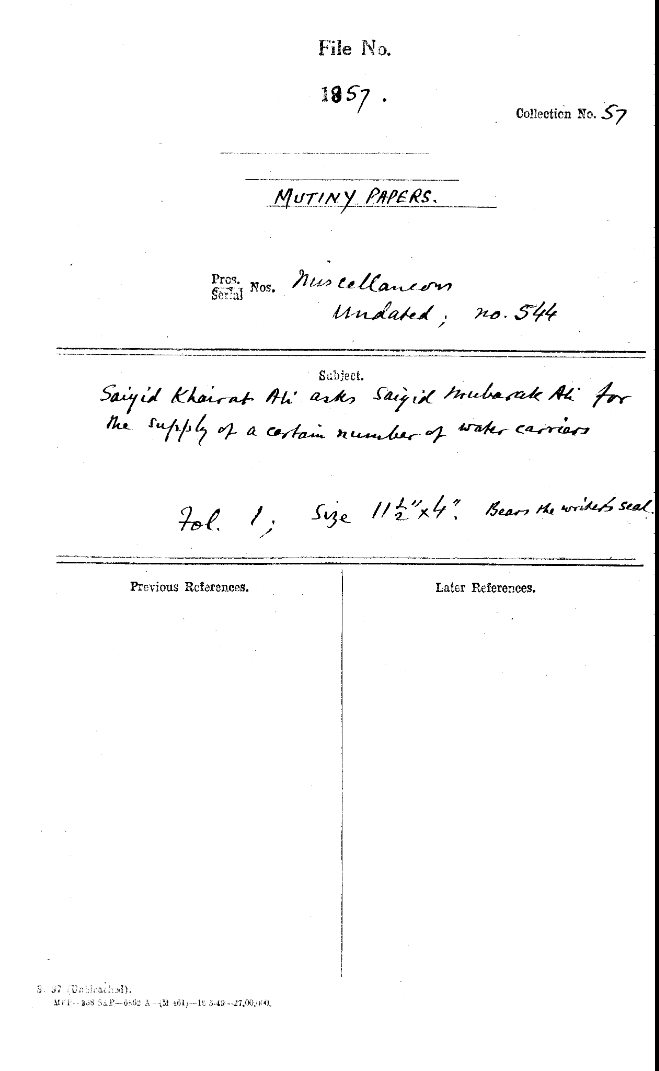 File No.
1857.
Collection No. 57
MUTINY PAPERS.
Pros. Serial Nos. Miscellaneous
Undated; no. 544
Subject.
Saiyid Khairat Ali asks Saiyid Mubarak Ali for
the supply of a certain number of water carriers
Fol. 1; Size 11½"x4". Bears the writer's seal.
Previous References.
Later References.
S. 57 (Unbleached).